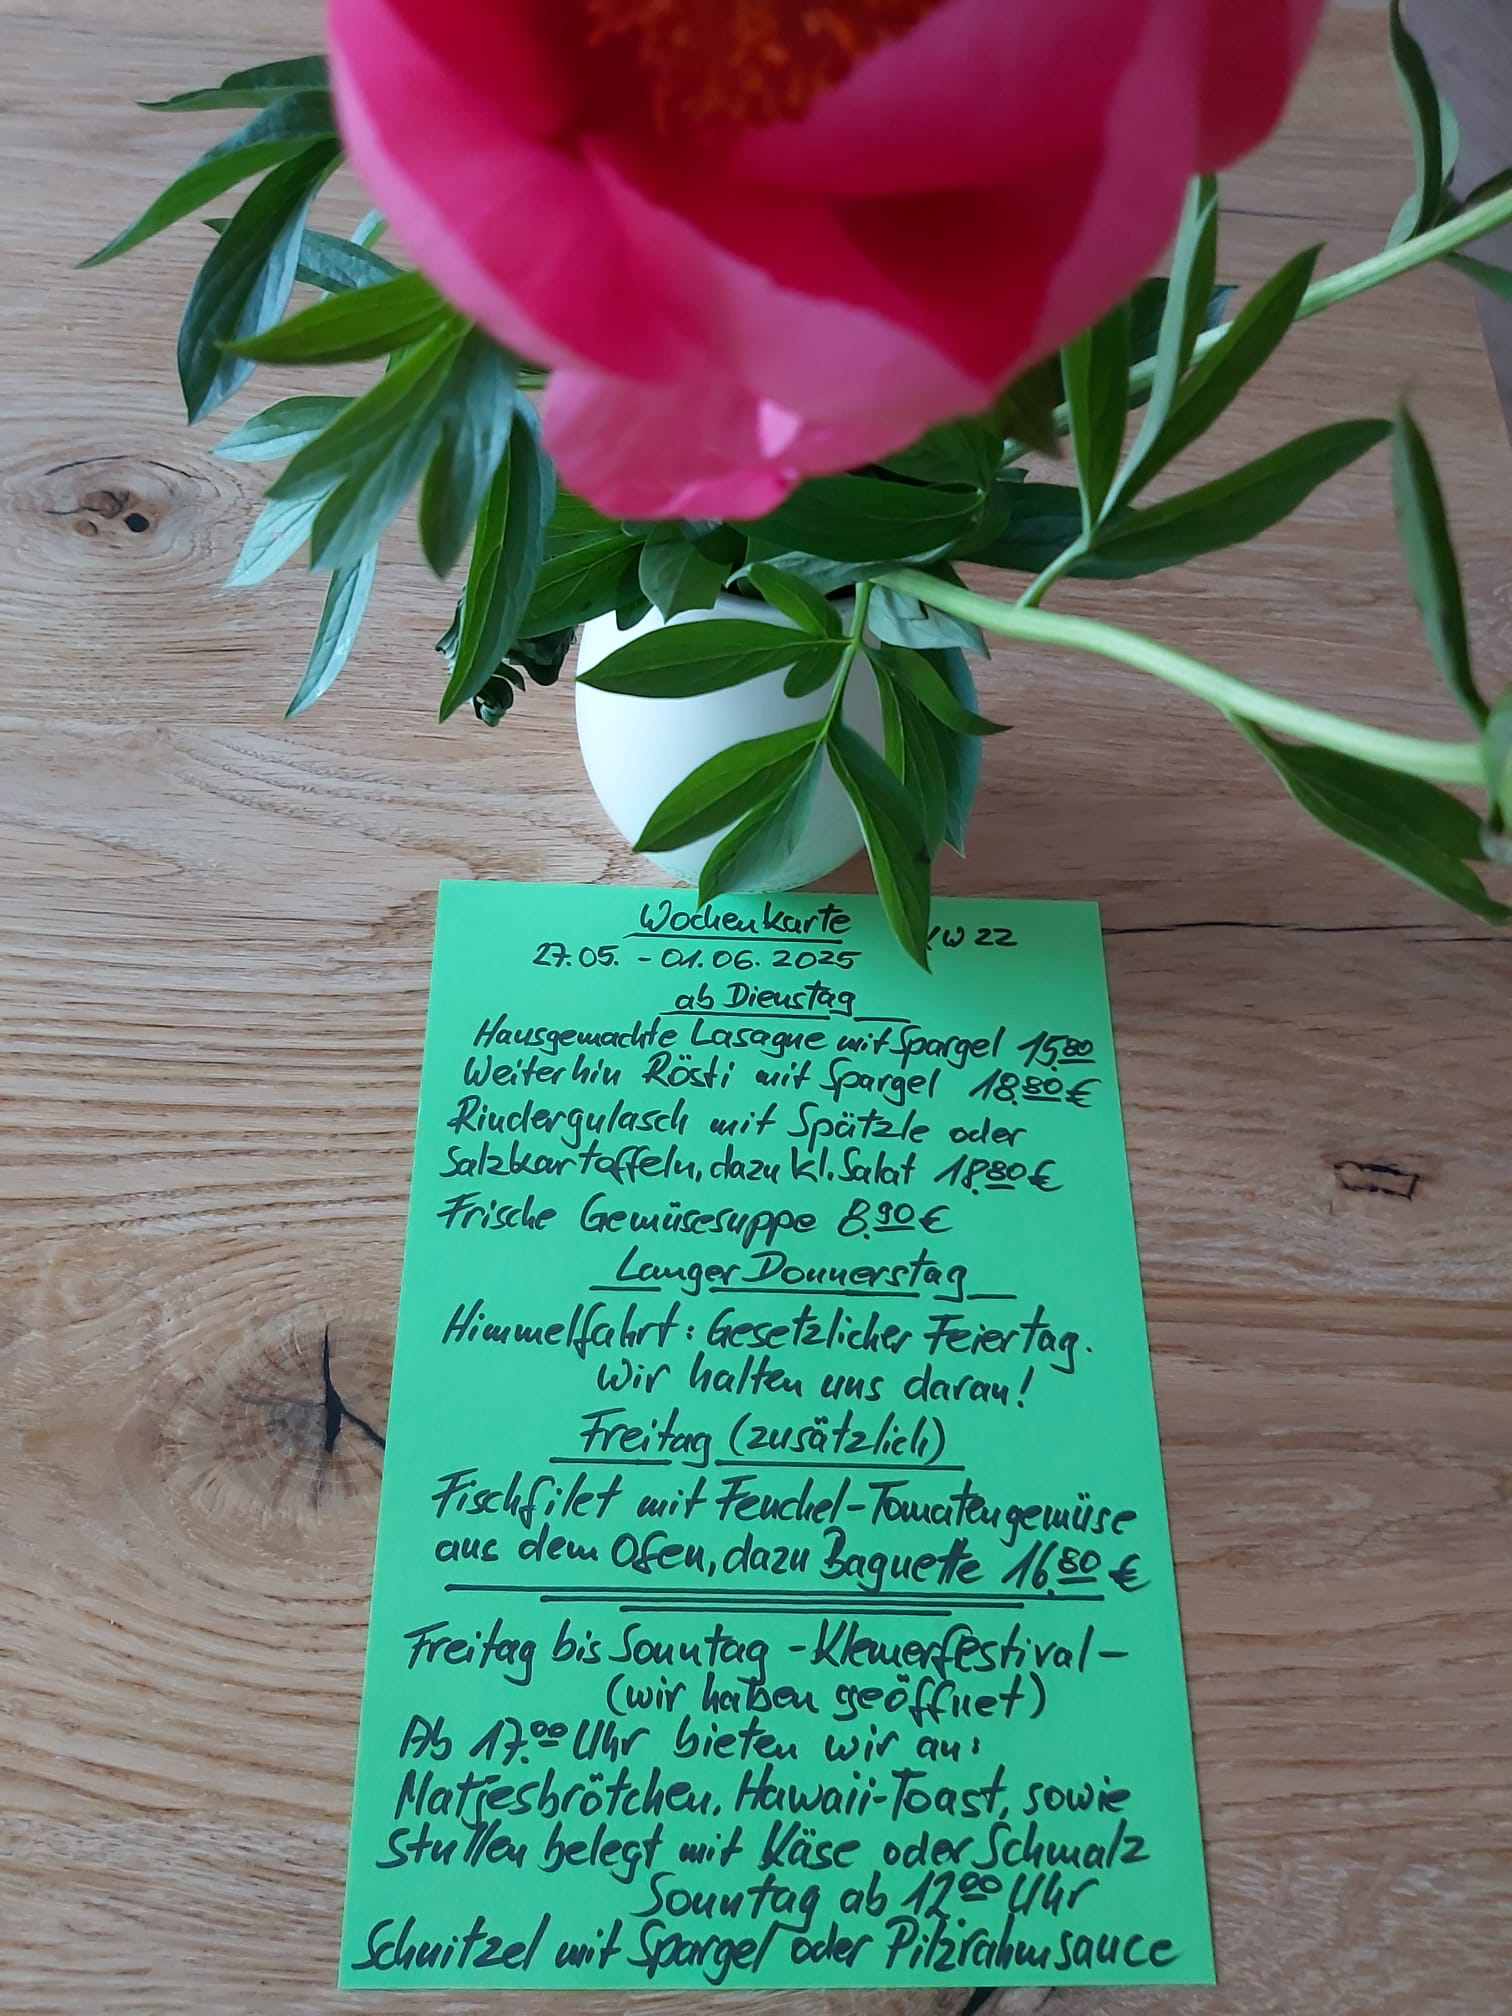 Wochenkarte
KW 22
27.05. - 01.06. 2025
ab Dienstag
Hausgemachte Lasagne mit Spargel 15.80
Weiterhin Rösti mit Spargel 18.80 €
Rindergulasch mit Spätzle oder
Salzkartoffeln, dazu kl. Salat 18.80 €
Frische Gemüsesuppe 8.90 €
Langer Donnerstag
Himmelfahrt: Gesetzlicher Feiertag.
Wir halten uns daran!
Freitag (zusätzlich)
Fischfilet mit Fenchel-Tomatengemüse
aus dem Ofen, dazu Baguette 16.80 €
Freitag bis Sonntag - Klemerfestival -
(wir haben geöffnet)
Ab 17.00 Uhr bieten wir an:
Matjesbrötchen, Hawaii-Toast, sowie
Stullen belegt mit Käse oder Schmalz
Sonntag ab 12.00 Uhr
Schnitzel mit Spargel oder Pilzrahmsauce